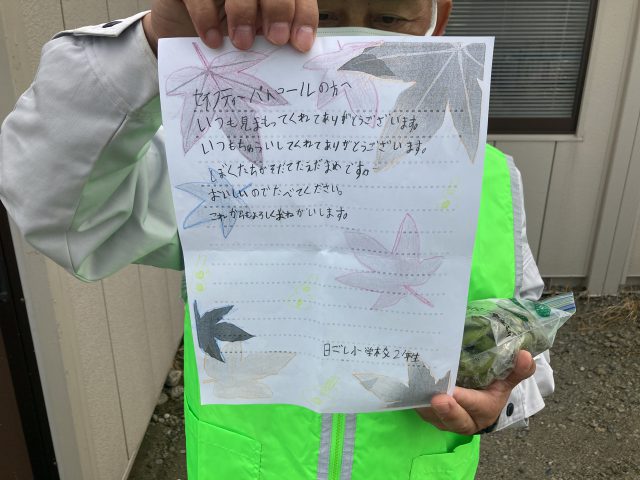 セイフティーパトロールの方へ
いつも見まもってくれてありがとうございます。
いつもちゅういしてくれてありがとうございます。
ぼくたちがそだてたえだまめです。
おいしいのでたべてください。
これからもよろしくおねがいします。
日ごし小学校2年生